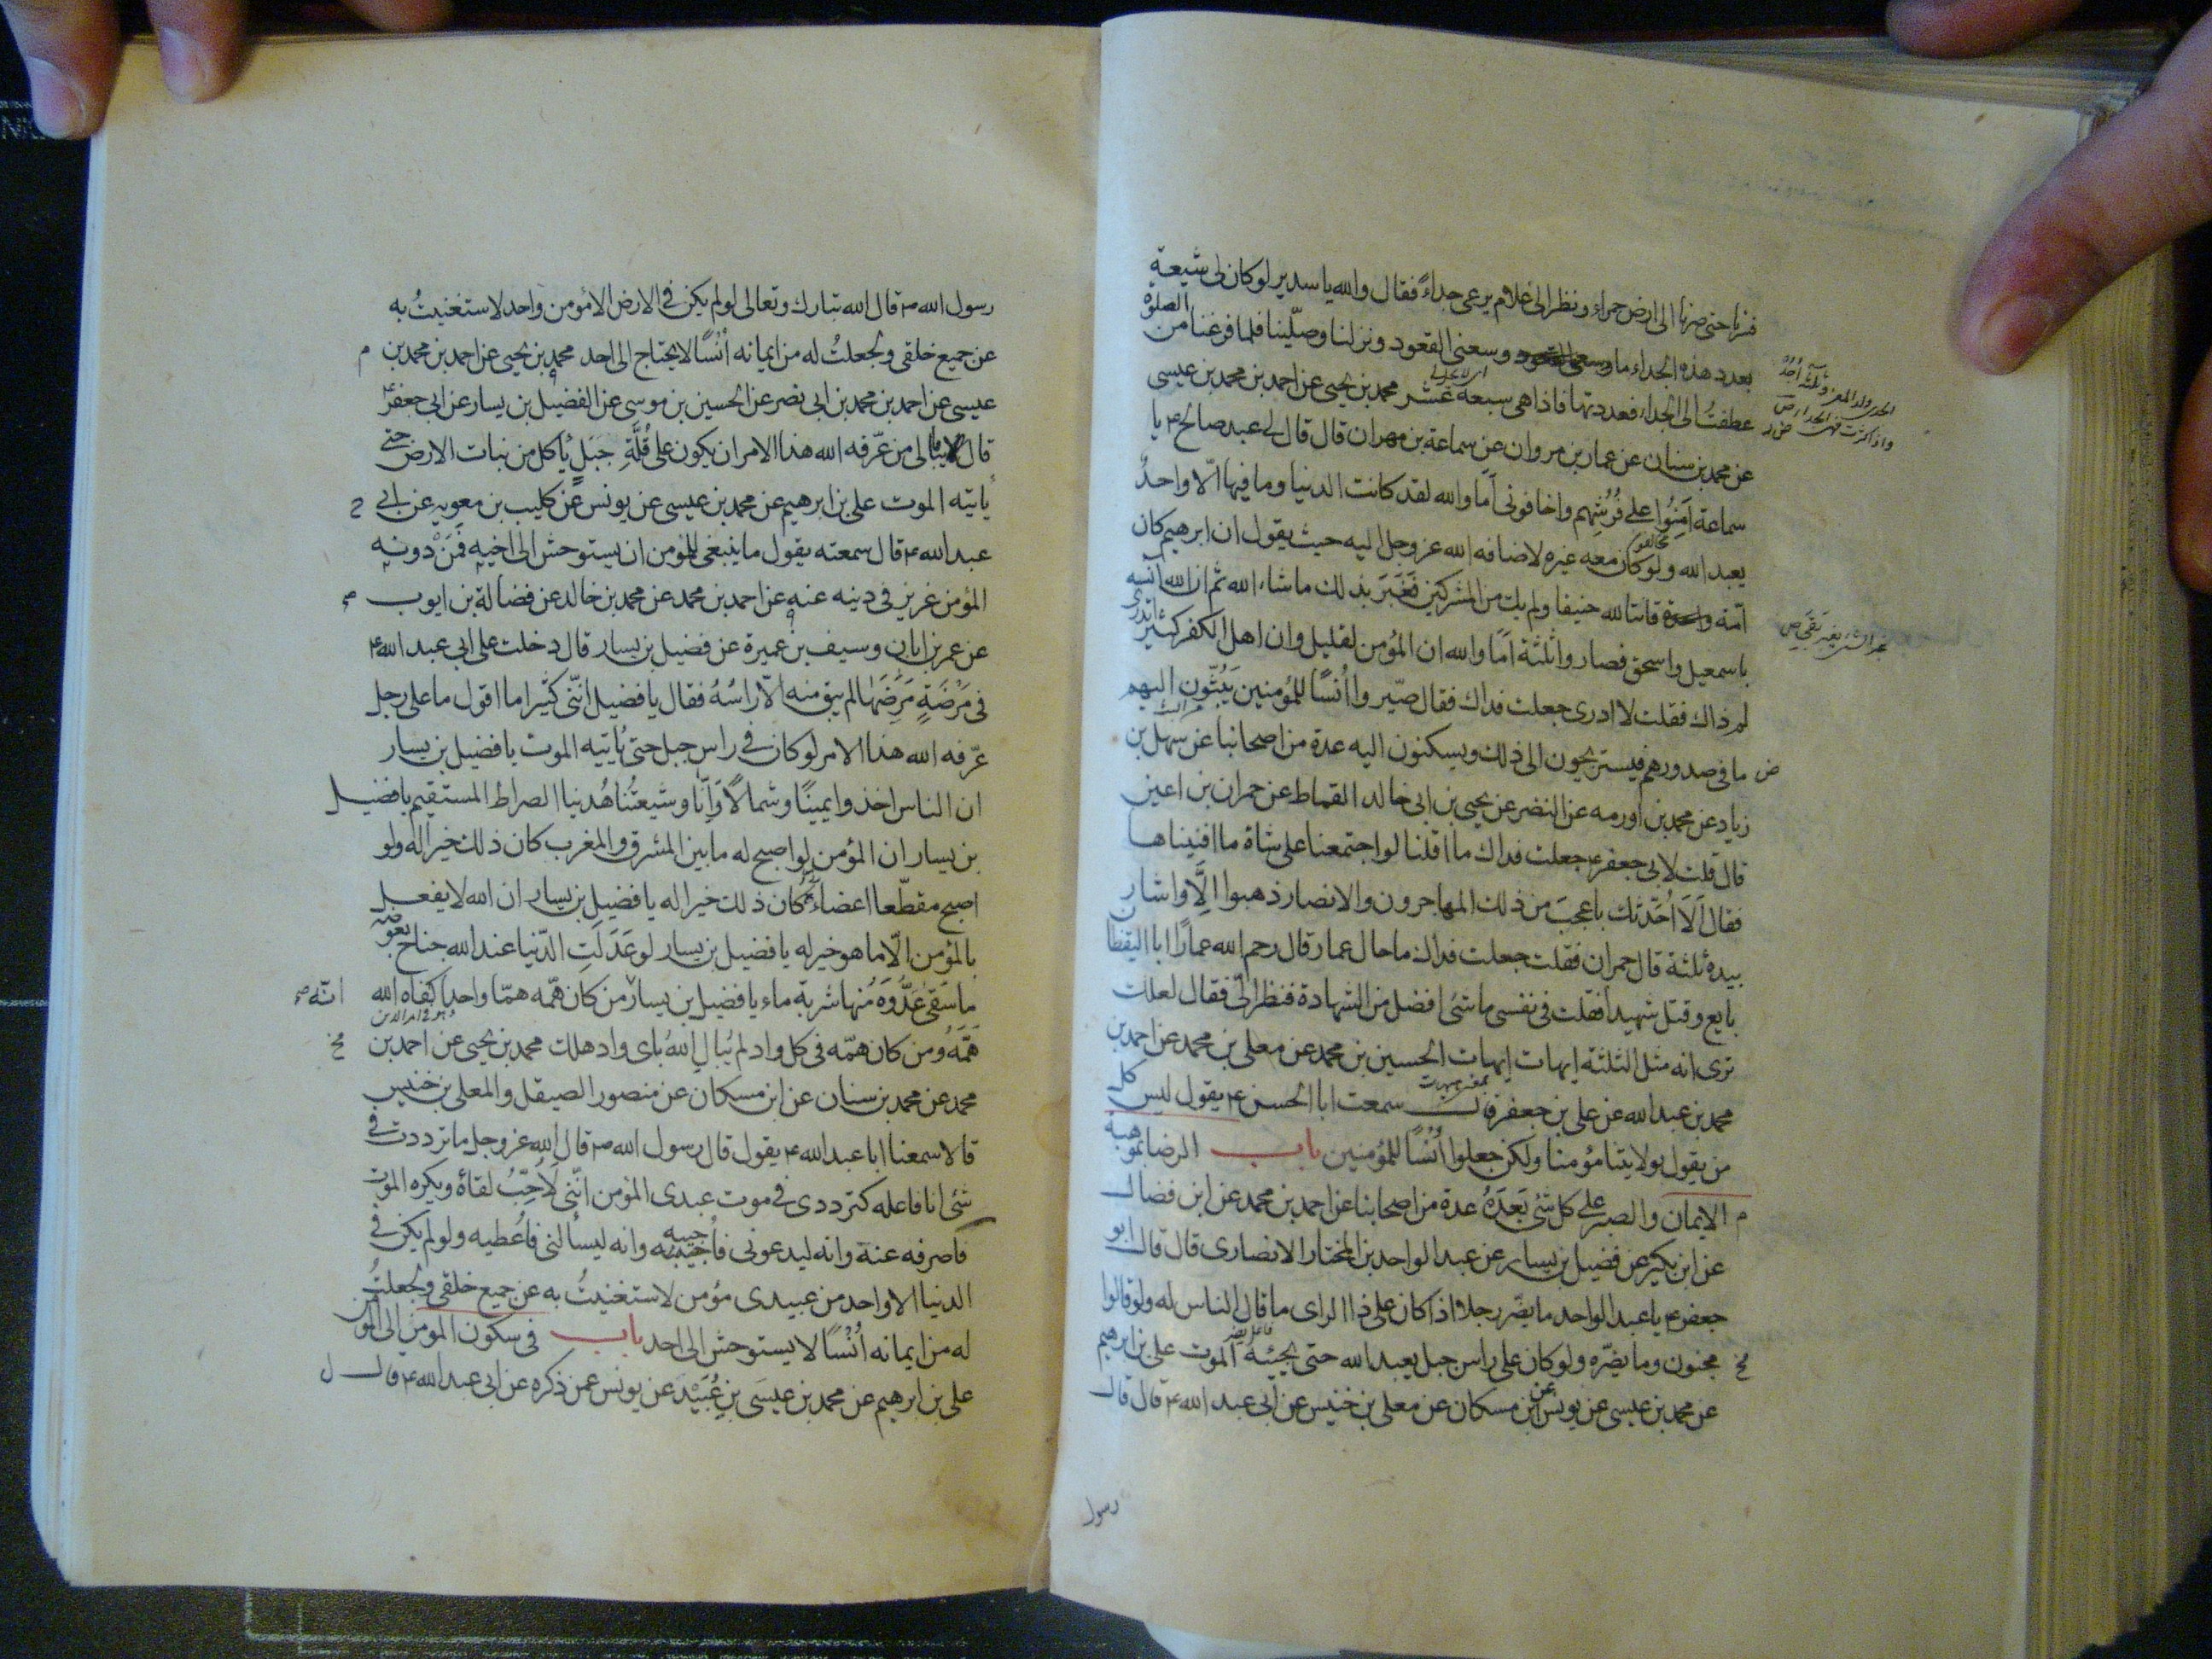 فنزلنا حتى صرنا الى ارض حمراء ونظر الى غلام يرعى جداءً فقال والله يا سدير لو كان لى شيعة
بعدد هذه الجداء ما وسعنى القعود ونزلنا وصلّينا فلما فرغنا من الصلوة
عطفتُ الى الجداء فعددتها فاذا هى سبعة عشر محمد بن يحيى عن احمد بن محمد بن عيسى
عن محمد بن سنان عن عمار بن مروان عن سماعة بن مهران قال قال لى عبد صالح ع يا
سماعة اَمِنُوا على فُرُشِهم واخافونى اَمَا والله لقد كانت الدنيا وما فيها الّا واحدٌ
يعبد الله ولو كان معه غيره لاضافه الله عز وجل اليه حيث يقول ان ابرهيم كان
اُمّة قانتا لله حنيفا ولم يك من المشركين فَغَبَرَ بذلك ما شاء الله ثم ان الله آنسه
باسمعيل واسحق فصاروا ثلثة اَمَا والله ان المؤمن لقليل وان اهل الكفر كثير اتدرى
لم ذاك فقلت لا ادرى جعلت فداك فقال صيّروا اُنسًا للمؤمنين يَبُثّون اليهم
ما فى صدورهم فيستريحون الى ذلك ويسكنون اليه عدة من اصحابنا عن سهل بن
زياد عن محمد بن اورمه عن النضر عن يحيى بن ابى خالد القماط عن حمران بن اعين
قال قلت لابى جعفر ع جعلت فداك ما اقلنا لو اجتمعنا على شاة ما افنيناها
فقال اَلَا اُحَدّثك باعجبَ من ذلك المهاجرون والانصار ذهبوا اِلَّا واشار
بيده ثلثة قال حمران فقلت جعلت فداك ما حال عمار قال رحم الله عمارًا ابا اليقظان
بايع وقتل شهيدا فقلت فى نفسى ما شئ افضل من الشهادة فنظر الىّ فقال لعلك
ترى انه مثل الثلثة ايهات ايهات الحسين بن محمد عن معلى بن محمد عن احمد بن
محمد بن عبد الله عن على بن جعفر قال سمعت ابا الحسن ع يقول ليس كل
من يقول بولايتنا مؤمنا ولكن جعلوا اُنْسًا للمؤمنين باب الرضا بموهبة
الايمان والصبر على كل شئ بَعدَهُ عدة من اصحابنا عن احمد بن محمد عن ابن فضال
عن ابن بكير عن فضيل بن يسار عن عبد الواحد بن المختار الانصارى قال قال ابو
جعفر ع يا عبد الواحد ما يضّر رجلا اذا كان على ذا الراى ما قال الناس له ولو قالوا
مجنون وما يضّره ولو كان على راس جبل يعبد الله حتى يجيئه الموت على بن ابرهيم
عن محمد بن عيسى عن يونس عن ابن مسكان عن معلى بن خنيس عن ابى عبد الله ع قال قال
رسول
رسول الله ص قال الله تبارك وتعالى لو لم يكن فى الارض الا مؤمن واحد لاستغنيتُ به
عن جميع خلقى ولجعلتُ له من ايمانه اُنْسًا لا يحتاج الى احد محمد بن يحيى عن احمد بن محمد بن
عيسى عن احمد بن محمد بن ابى نصر عن الحسين بن موسى عن الفضيل بن يسار عن ابى جعفر ع
قال ما يبالى من عرّفه الله هذا الامر ان يكون على قُلَّةِ جبَلٍ ياكل من نبات الارض حتى
ياتيه الموت على بن ابرهيم عن محمد بن عيسى عن يونس عن كليب بن معويه عن ابى
عبد الله ع قال سمعته يقول ما ينبغى للمؤمن ان يستوحش الى اخيه فَمَنْ دونه
المؤمن عزيز فى دينه عنه عن احمد بن محمد عن محمد بن خالد عن فضالة بن ايوب
عن عمر بن ابان وسيف بن عميرة عن فضيل بن يسار قال دخلت على ابى عبد الله ع
فى مَرْضَةٍ مَرِضَها لم يبق منه الّا راسُهُ فقال يا فضيل انّنى كثيرا ما اقول ما على رجل
عرّفه الله هذا الامر لو كان فى راس جبل حتى ياتيه الموت يا فضيل بن يسار
ان الناس اخذوا يمينًا وشمالًا وَاِنّا وشيعتُنا هُدينا الصراط المستقيم يا فضيل
بن يسار ان المؤمن لو اصبح له ما بين المشرق والمغرب كان ذلك خيرا له ولو
اصبح مقطّعا اعضاؤه كان ذلك خيرا له يا فضيل بن يسار ان الله لا يفعل
بالمؤمن الّا ما هو خير له يا فضيل بن يسار لو عَدَلَتِ الدّنيا عند الله جناح بعوضة
ما سَقى عَدُّوَهُ منها شربة ماء يا فضيل بن يسار من كان همّه همّا واحدا كفاه الله
هَمَّهُ ومن كان همّه فى كل واد لم يُبالِ اللهُ باى واد هلك محمد بن يحيى عن احمد بن
محمد عن محمد بن سنان عن ابن مسكان عن منصور الصيقل والمعلى بن خنيس
قالا سمعنا ابا عبد الله ع يقول قال رسول الله ص قال الله عز وجل ما ترددت فى
شئ انا فاعله كترددى فى موت عبدى المؤمن انّنى لَاُحِبُّ لقاءه ويكره الموت
فاصرفه عنه وانه ليدعونى فاُجيبه وانه ليسألنى فاُعطيه ولو لم يكن فى
الدنيا الا واحد من عبيدى مؤمن لاستغنيتُ به عن جميع خلقى ولجعلتُ
له من ايمانه اُنْسًا لا يستوحش الى احد باب فى سكون المؤمن الى المؤمن
على بن ابرهيم عن محمد بن عيسَى بنِ عُبَيْد عن يونس عمن ذكره عن ابى عبد الله ع قال